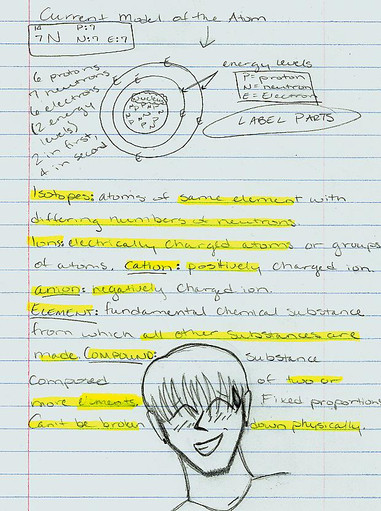 Current Model of the Atom
14
7 N P:7
N:7 E:7
6 protons
7 neutrons
6 electrons
(2 energy
levels)
2 in first,
4 in second
Nucleus
energy levels
P=proton
N=neutron
E=Electron
LABEL PARTS
Isotopes: atoms of same element with
differing numbers of neutrons.
Ions: electrically charged atoms or groups
of atoms. Cation: positively charged ion.
anion: negatively charged ion.
ELEMENT: fundamental chemical substance
from which all other substances are
made. COMPOUND: substance
composed of two or
more elements. Fixed proportions
Can't be broken down physically.